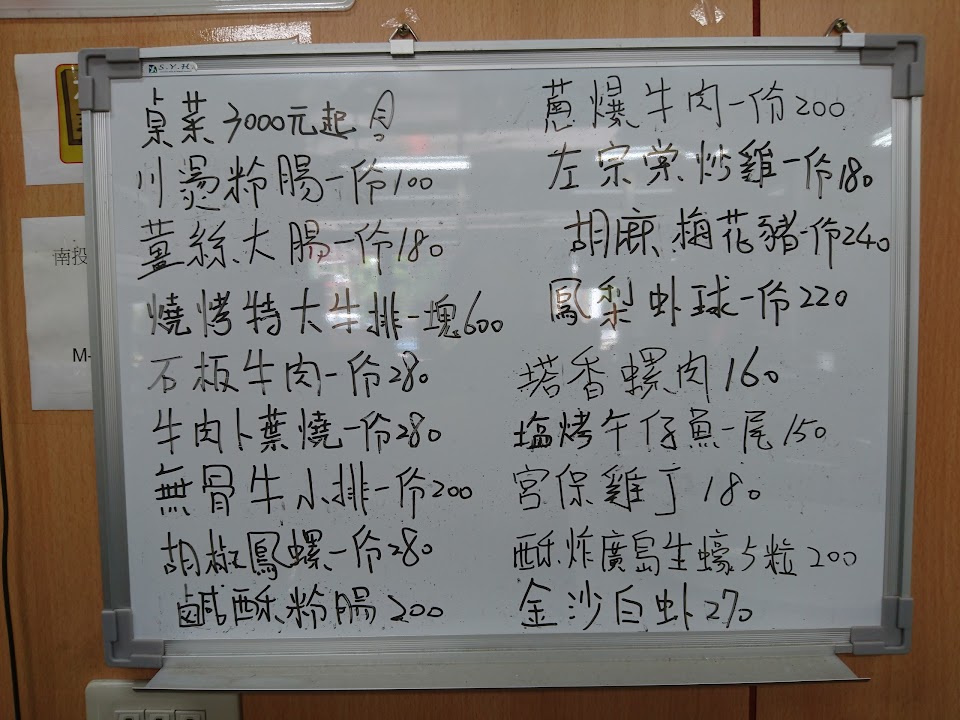 S.Y.H
桌菜3000元起
川燙粉腸一份100
薑絲大腸一份180
燒烤特大牛排一塊600
石板牛肉一份280
牛肉卜葉燒一份280
無骨牛小排一份200
胡椒鳳螺一份280
鹹酥粉腸200
蔥爆牛肉一份200
左宗棠炒雞一份180
胡麻梅花豬一份240
鳳梨虾球一份220
塔香螺肉160
塩烤午仔魚一尾150
宮保雞丁180
酥炸廣島生蠔5粒200
金沙白虾270
南投
M-